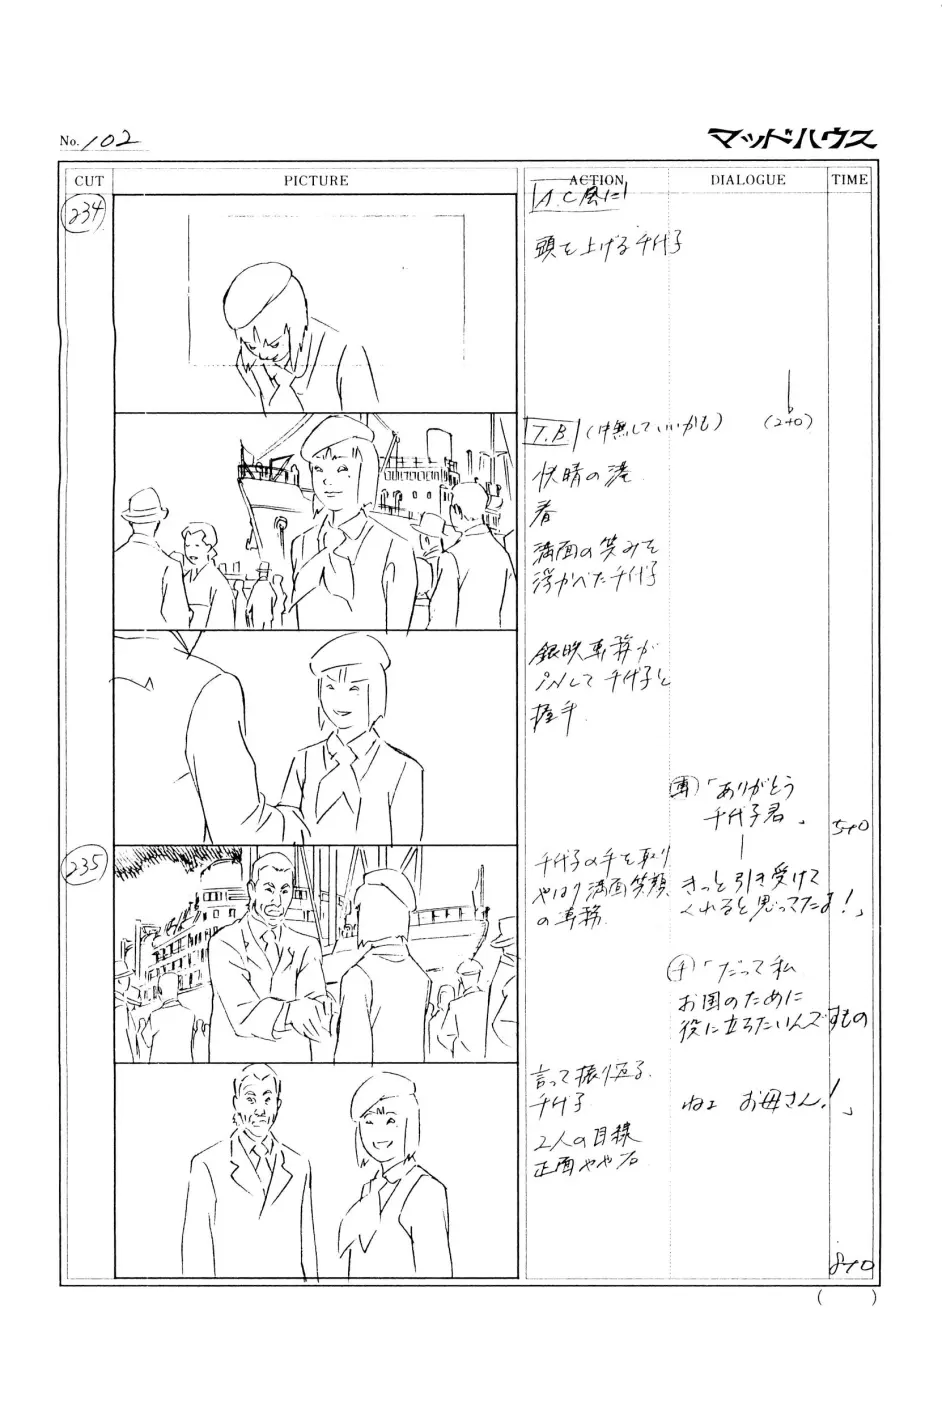 No. 102
マッドハウス
CUT
PICTURE
ACTION
DIALOGUE
TIME
234
A.C風に
頭を上げる千代子
T.B
(無していいかも)
(2+0)
快晴の港
春
満面の笑みを
浮かべた千代子
銀映専務が
INして千代子と
握手.
専「ありがとう
千代子君」
5+0
235
千代子の手を取り
やはり満面笑顔
の専務
きっと引き受けて
くれると思ってたよ!」
千「だって私
お国のために
役に立ちたいんですもの
言って振り返る
千代子
ねェ お母さん!」
2人の目線
正面やや
8+0
( )